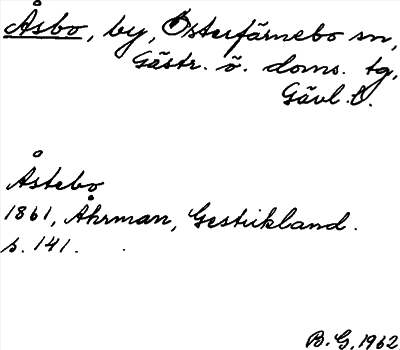 Åsbo, by, Österfärnebo sn,
Gästr. ö. doms. tg,
Gävl. l.
Åstebo
1861, Åhrman, Gestrikland.
s. 141.
B. G. 1962